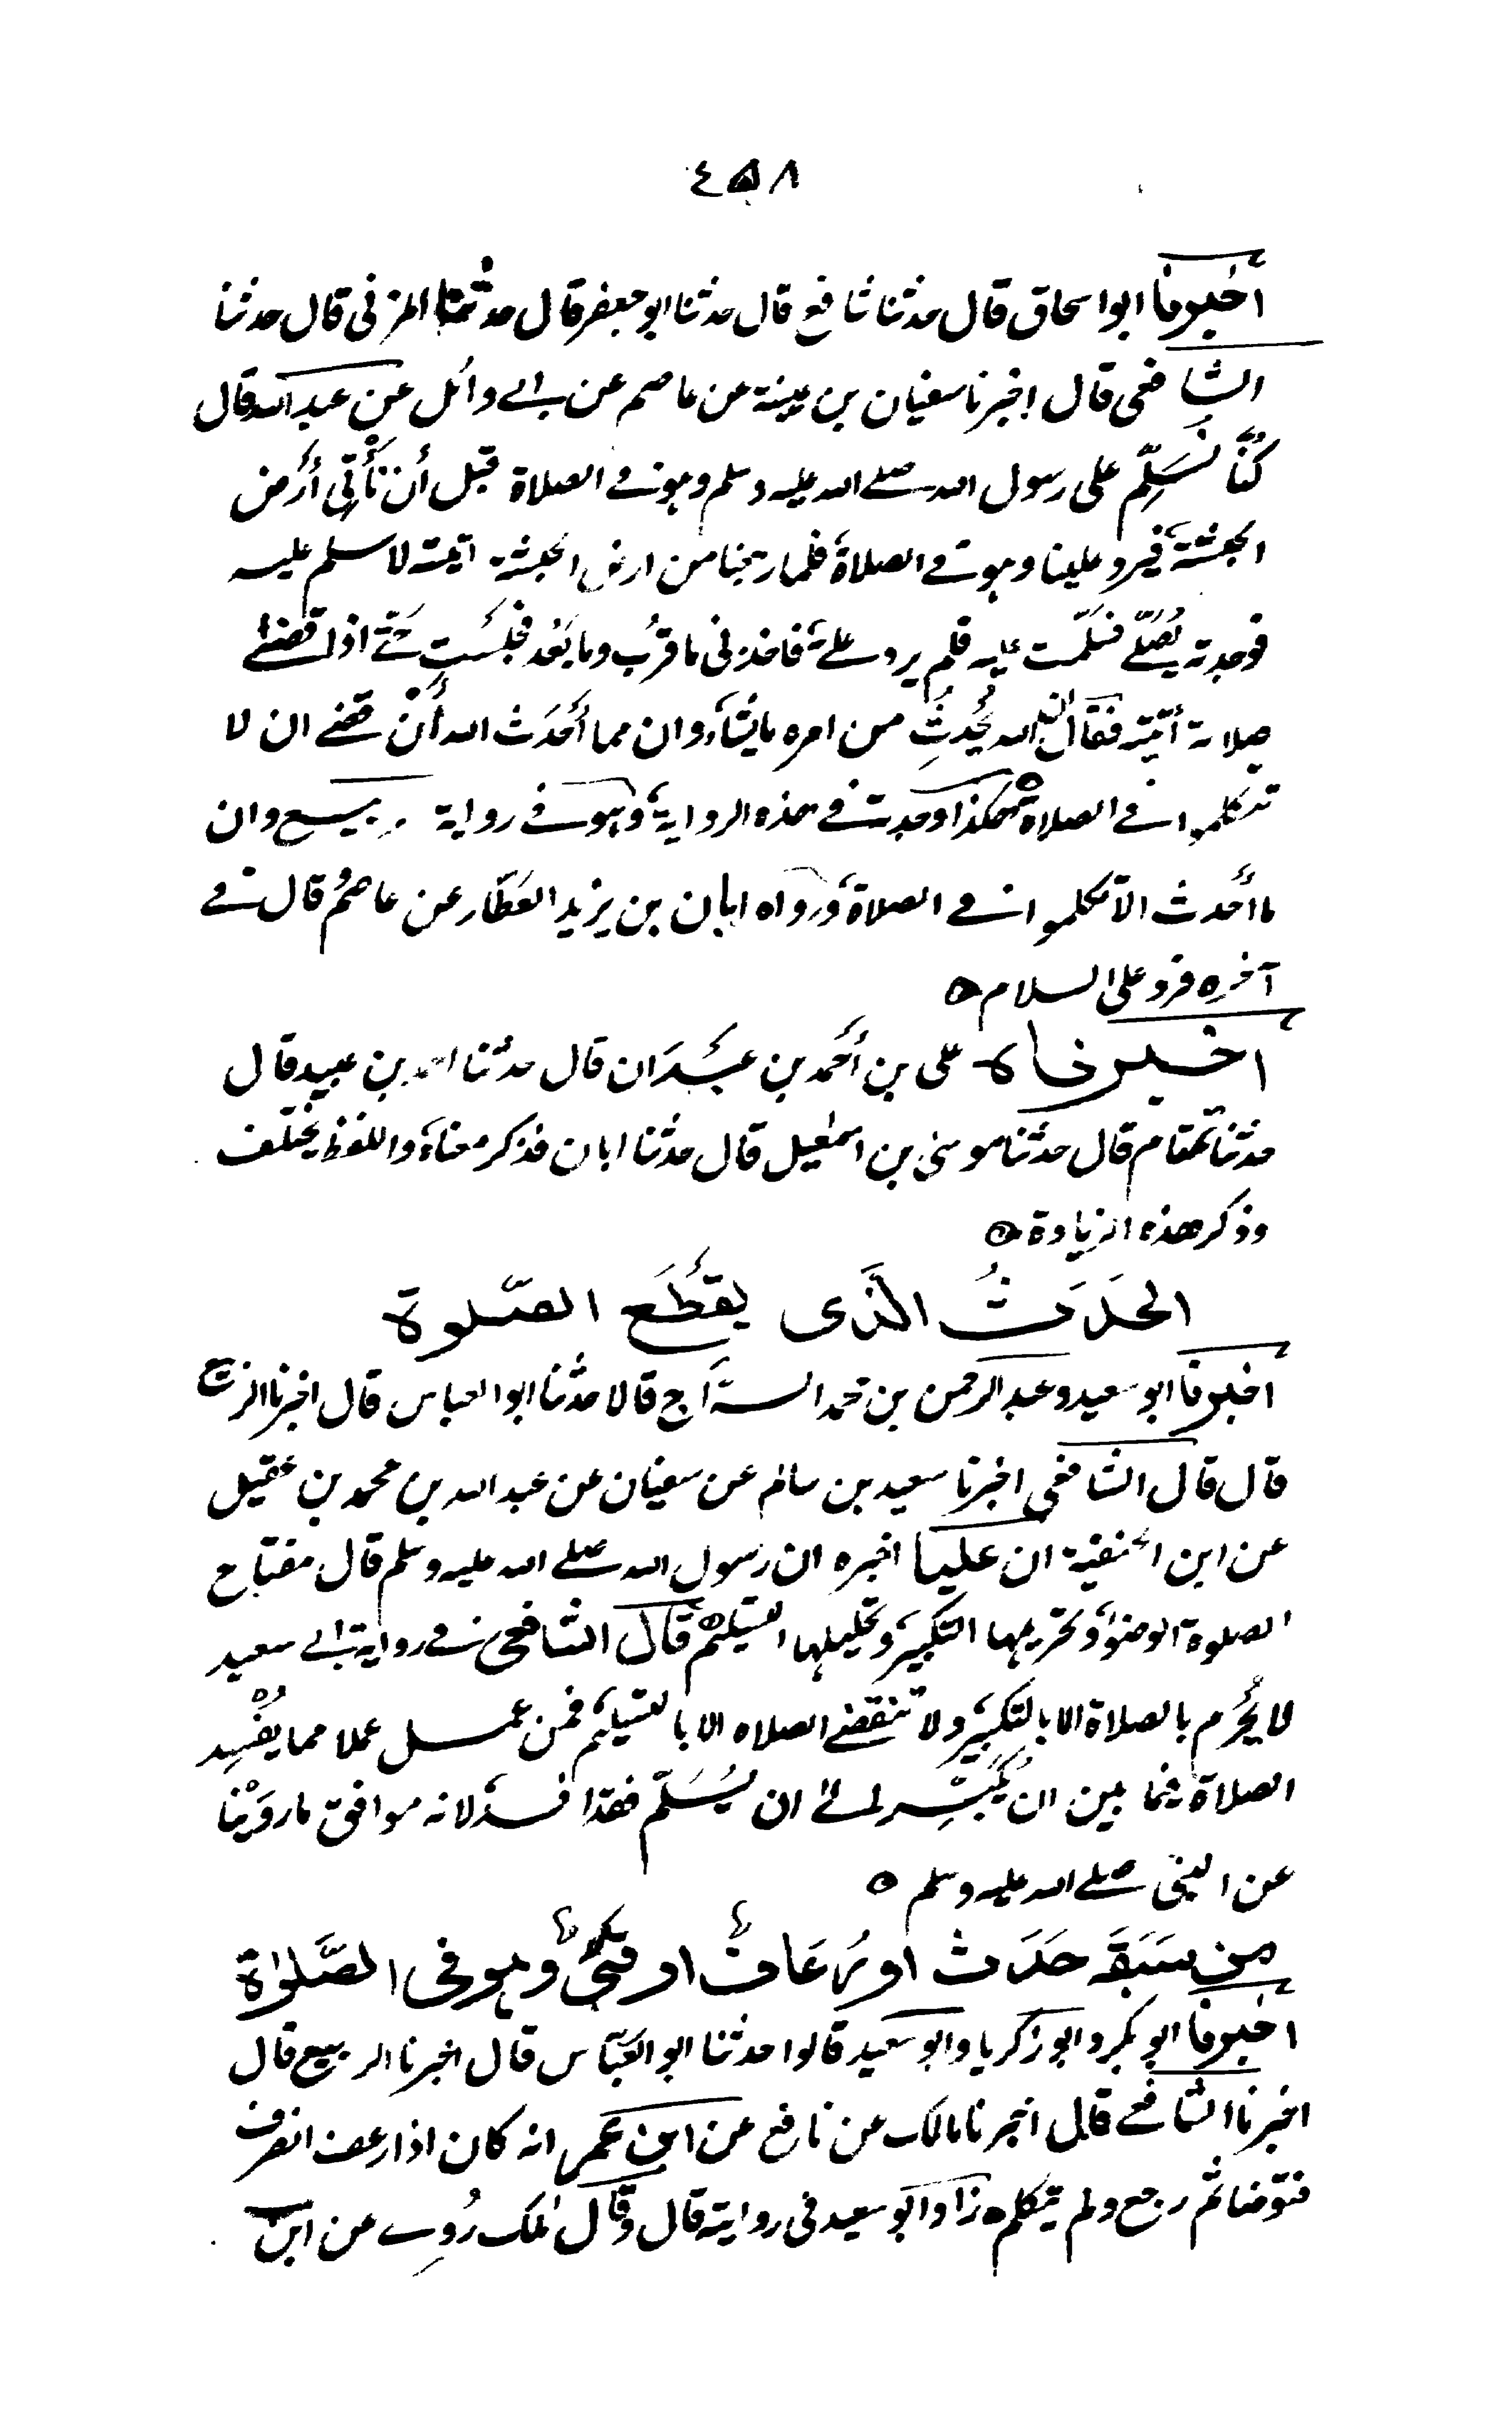 ٤٥٨
اخبرنا ابو اسحاق قال حدثنا شافع قال حدثنا ابو جعفر قال حدثنا المزنى قال حدثنا
الشافعى قال اخبرنا سفيان بن عيينة عن عاصم عن ابى وائل عن عبد الله قال
كنّا نُسَلِّم على رسول الله صلى الله عليه وسلم وهو فى الصلاة قبل أن نأتى أرض
الحبشة فيرد علينا وهو فى الصلاة فلما رجعنا من ارض الحبشة اتيته لاسلم عليه
فوجدته يُصَلّى فسلّمت عليه فلم يرد علىّ فاخذنى ما قرُب وما بَعُد فجلَست حتى اذا قضى
صلاته أتيته فقال ان الله يُحدِث من امره ما يشاء وان مما أحدَث الله أن قضى ان لا
تتكلموا فى الصلاة هكذا وجدته فى هذه الرواية وهو فى رواية ربيع وان
مما أحدث الا تكلموا فى الصلاة ورواه ابان بن يزيد العَطّار عن عاصم قال فى
آخره فرد على السلام
اخبرناه على بن أحمد بن عَبدَان قال حدثنا احمد بن عبيد قال
حدثنا تمتام قال حدثنا موسى بن اسمٰعيل قال حدثنا ابان فذكر معناه واللفظ يختلف
وذكر هذه الزيادة
الحَدَثُ الّذى يقطَع الصّلوة
اخبرنا ابو سعيد وعبد الرحمن بن محمد السرّاج قالا حدثنا ابو العباس قال اخبرنا الربيع
قال قال الشافعى اخبرنا سعيد بن سالم عن سفيان عن عبد الله بن محمد بن عقيل
عن ابن الحنفية ان عليا اخبره ان رسول الله صلى الله عليه وسلم قال مفتاح
الصلوة الوضوء وتحريمها التكبير وتحليلها التسليم قال الشافعى فى رواية ابى سعيد
لا يُحرم بالصلاة الا بالتكبير ولا تنقضى الصلاه الا بالتسليم فمن عمل عملا مما يُفْسِد
الصلاة فيما بين ان يُكَبِّر الى ان يُسَلّم فقد افسد لانه موافق ما روَيْنا
عن النبى صلى الله عليه وسلم
من سَبَقَه حَدَث او رُعَاف او قىٌ وهو فى الصَّلٰوة
اخبرنا ابو بكر وابو زكريا وابو سعيد قالوا حدثنا ابو العَبّاس قال اخبرنا الربيع قال
اخبرنا الشافعى قال اخبرنا مالك عن نافع عن ابن عمر انه كان اذا رعف انصرف
فتوضا ثم رجع ولم يتكلم زاد ابو سعيد فى روايته قال وقال مٰلك رُوى عن ابن